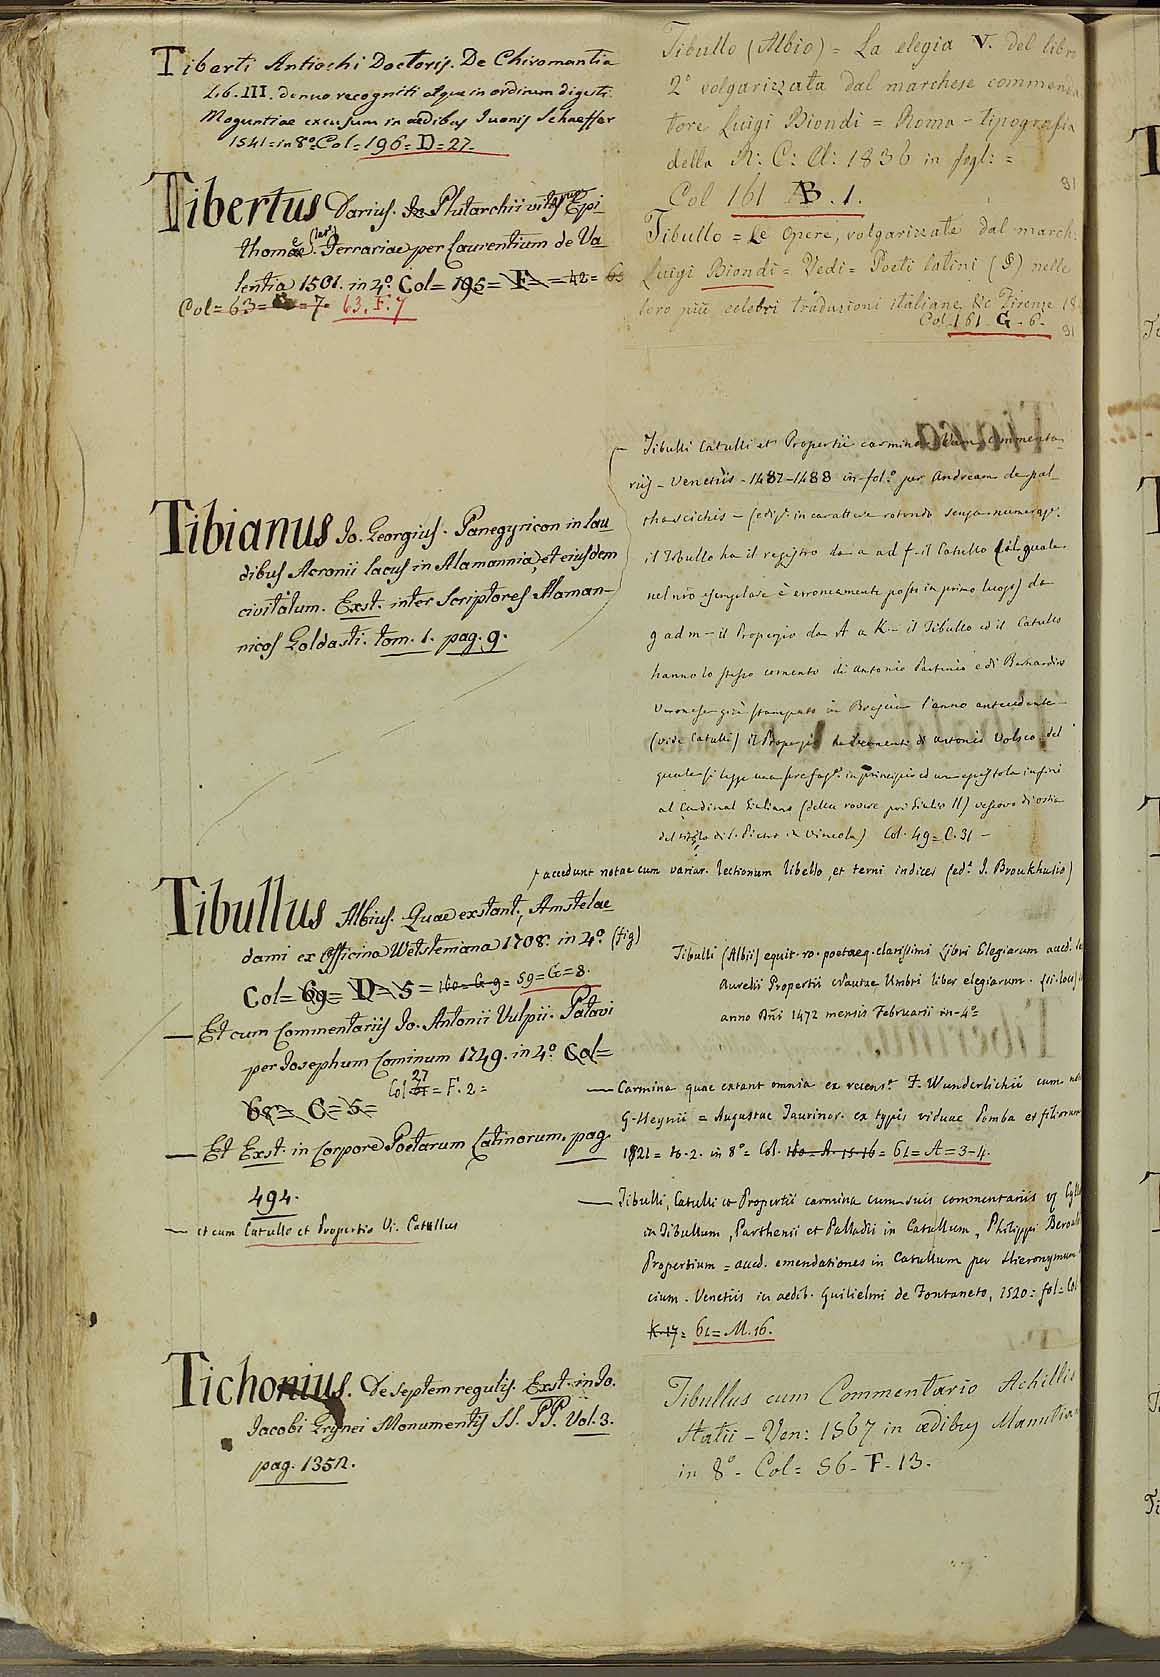 Tiberti Antiochi Doctoris. De Chiromantia
Lib. III. denuo recogniti atque in ordinem digesti.
Moguntiae excusum in ædibus Iuonis Schaeffer
1541 = in 8º Col = 196 = D = 27.
Tibertus Darius. Plutarchii vitarum Epi-
thomae. Ferrariae per Laurentium de Va-
lentia 1501. in 4º. Col = 195 = F = 42 = 63
Col = 63 = 7. 63. F. 7
Tibianus Io. Georgius. Panegyricon in lau
dibus Acronii lacus in Alamannia, et eiusdem
civitatum. Exst. inter Scriptores Alaman-
nicos Goldasti. tom. 1. pag. 9.
accedunt notae cum variar. lectionum libello, et terni indices (ed.e J. Broukhusio)
Tibullus Albius. Quae exstant, Amstelae
dami ex Officina Wetsteniana 1708. in 4º. (fig)
Col = 69 = D = 5 = 160 = G 9 = 59 = G = 8.
— Et cum Commentariis Io. Antonii Vulpii. Patavi
per Iosephum Cominum 1749. in 4º. Col =
Col 27 = F. 2 =
68 = C = 5 =
— Et Exst. in Corpore Poetarum Latinorum. pag.
494.
— et cum Catullo et Propertio Vi. Catullus
Tichonius. De septem regulis. Exst. in Io.
Jacobi Grynei Monumentis SS. PP. Vol. 3.
pag. 1352.
Tibullo (Albio) = La elegia V. del libro
2º volgarizzata dal marchese commenda
tore Luigi Biondi = Roma - tipografia
della R: C: A: 1836 in fogl: =
Col 161 AB. 1.
Tibullo = Le Opere, volgarizzate dal march:
Luigi Biondi = Vedi = Poeti latini (§) nelle
loro più celebri traduzioni italiane &c Firenze 18
Col. 161. G - 6.
Tibulli Catulli et Propertii carmina cum commenta-
rijs - Venetiis - 1487-1488 in fol.º per Andream de pal-
thascichis - (ediz.e in carattere rotondo senza numeraz.e
il Tibullo ha il registro da a ad f - il Catullo (il quale
nel nro esemplare è erroneamente posto in primo luogo) da
g ad m - il Properzio da A a K - il Tibullo ed il Catullo
hanno lo stesso comento di Antonio Partenio e di Bernardino
Veronese già stampato in Brescia l'anno antecedente
(vide Catulli) il Properzio ha il comento di Antonio Volsco, del
quale si legge una in principio ed una epistola in fini
al Cardinal Giuliano (della rovere poi Giulio II) vescovo di ostia
del titolo di S. Pietro in Vincola) Col. 49 = C. 31 -
Tibulli (Albii) equit. ro. poetaeq. clarissimi Libri Elegiarum acced.
Aurelii Propertii Nautae Umbri liber elegiarum. (si. loco)
anno Dñi 1472 mensis Februarii in - 4º
— Carmina quae extant omnia ex recens.e F. Wunderlichii cum
G. Heynii = Augustae Taurinor. ex typis viduae Pomba et filiorum
1821 = to. 2. in 8º = Col. 160 - A. 15-16 = 61 = A = 3-4.
— Tibulli, Catulli et Propertii carmina cum suis commentariis
in Tibullum, Parthenii et Palladii in Catullum, Philippi Beroal
Propertium = acced. emendationes in Catullum per Hieronymum
cium. Venetiis in aedib. Guilielmi de Fontaneto, 1520 = fol = Col
K. 17 = 61 = M. 16.
Tibullus cum Commentario Achillis
Statii - Ven: 1567 in ædibus Manutia
in 8º - Col = 56 - F - 13.